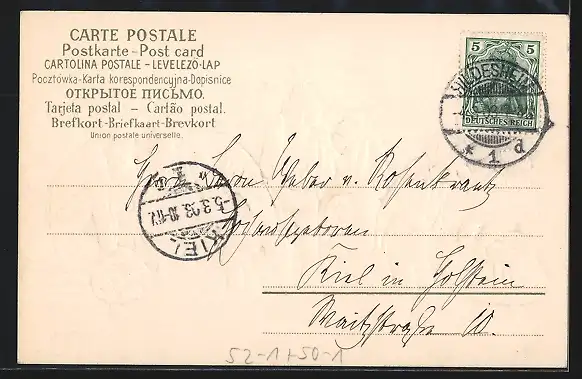 CARTE POSTALE
Postkarte – Post card
CARTOLINA POSTALE – LEVELEZŐ-LAP
Pocztówka-Karta korespondencyjna-Dopisnice
ОТКРЫТОЕ ПИСЬМО.
Tarjeta postal – Cartão postal.
Brefkort-Briefkaart-Brevkort
Union postale universelle.
5 5
DEUTSCHES REICH
HILDESHEIM
* 1 d
Herrn Baron Weber v. Rosenkrantz
5.3.03. 10-11V.
KIEL
Hochwohlgeboren
Kiel in Holstein
Waitzstraße 10.
52-1+50-1